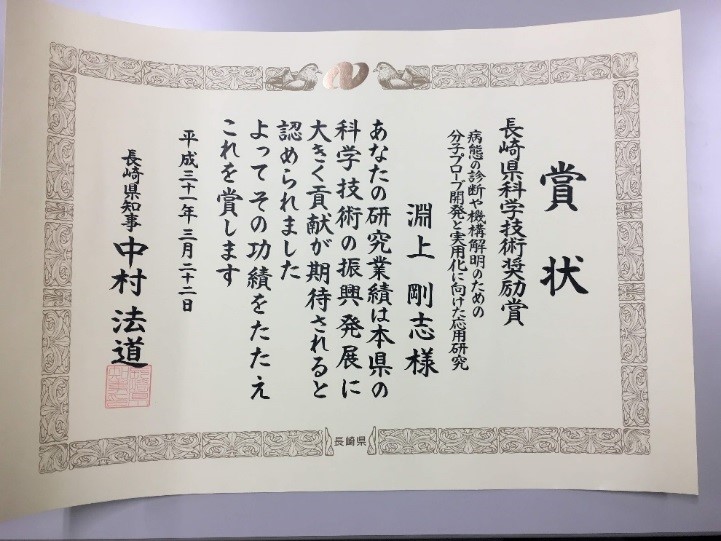 賞状
長崎県科学技術奨励賞
病態の診断や機構解明のための
分子プローブ開発と実用化に向けた応用研究
淵上剛志様
あなたの研究業績は本県の
科学技術の振興発展に
大きく貢献が期待されると
認められました
よってその功績をたたえ
これを賞します
平成三十一年三月二十二日
長崎県知事 中村法道
長崎県